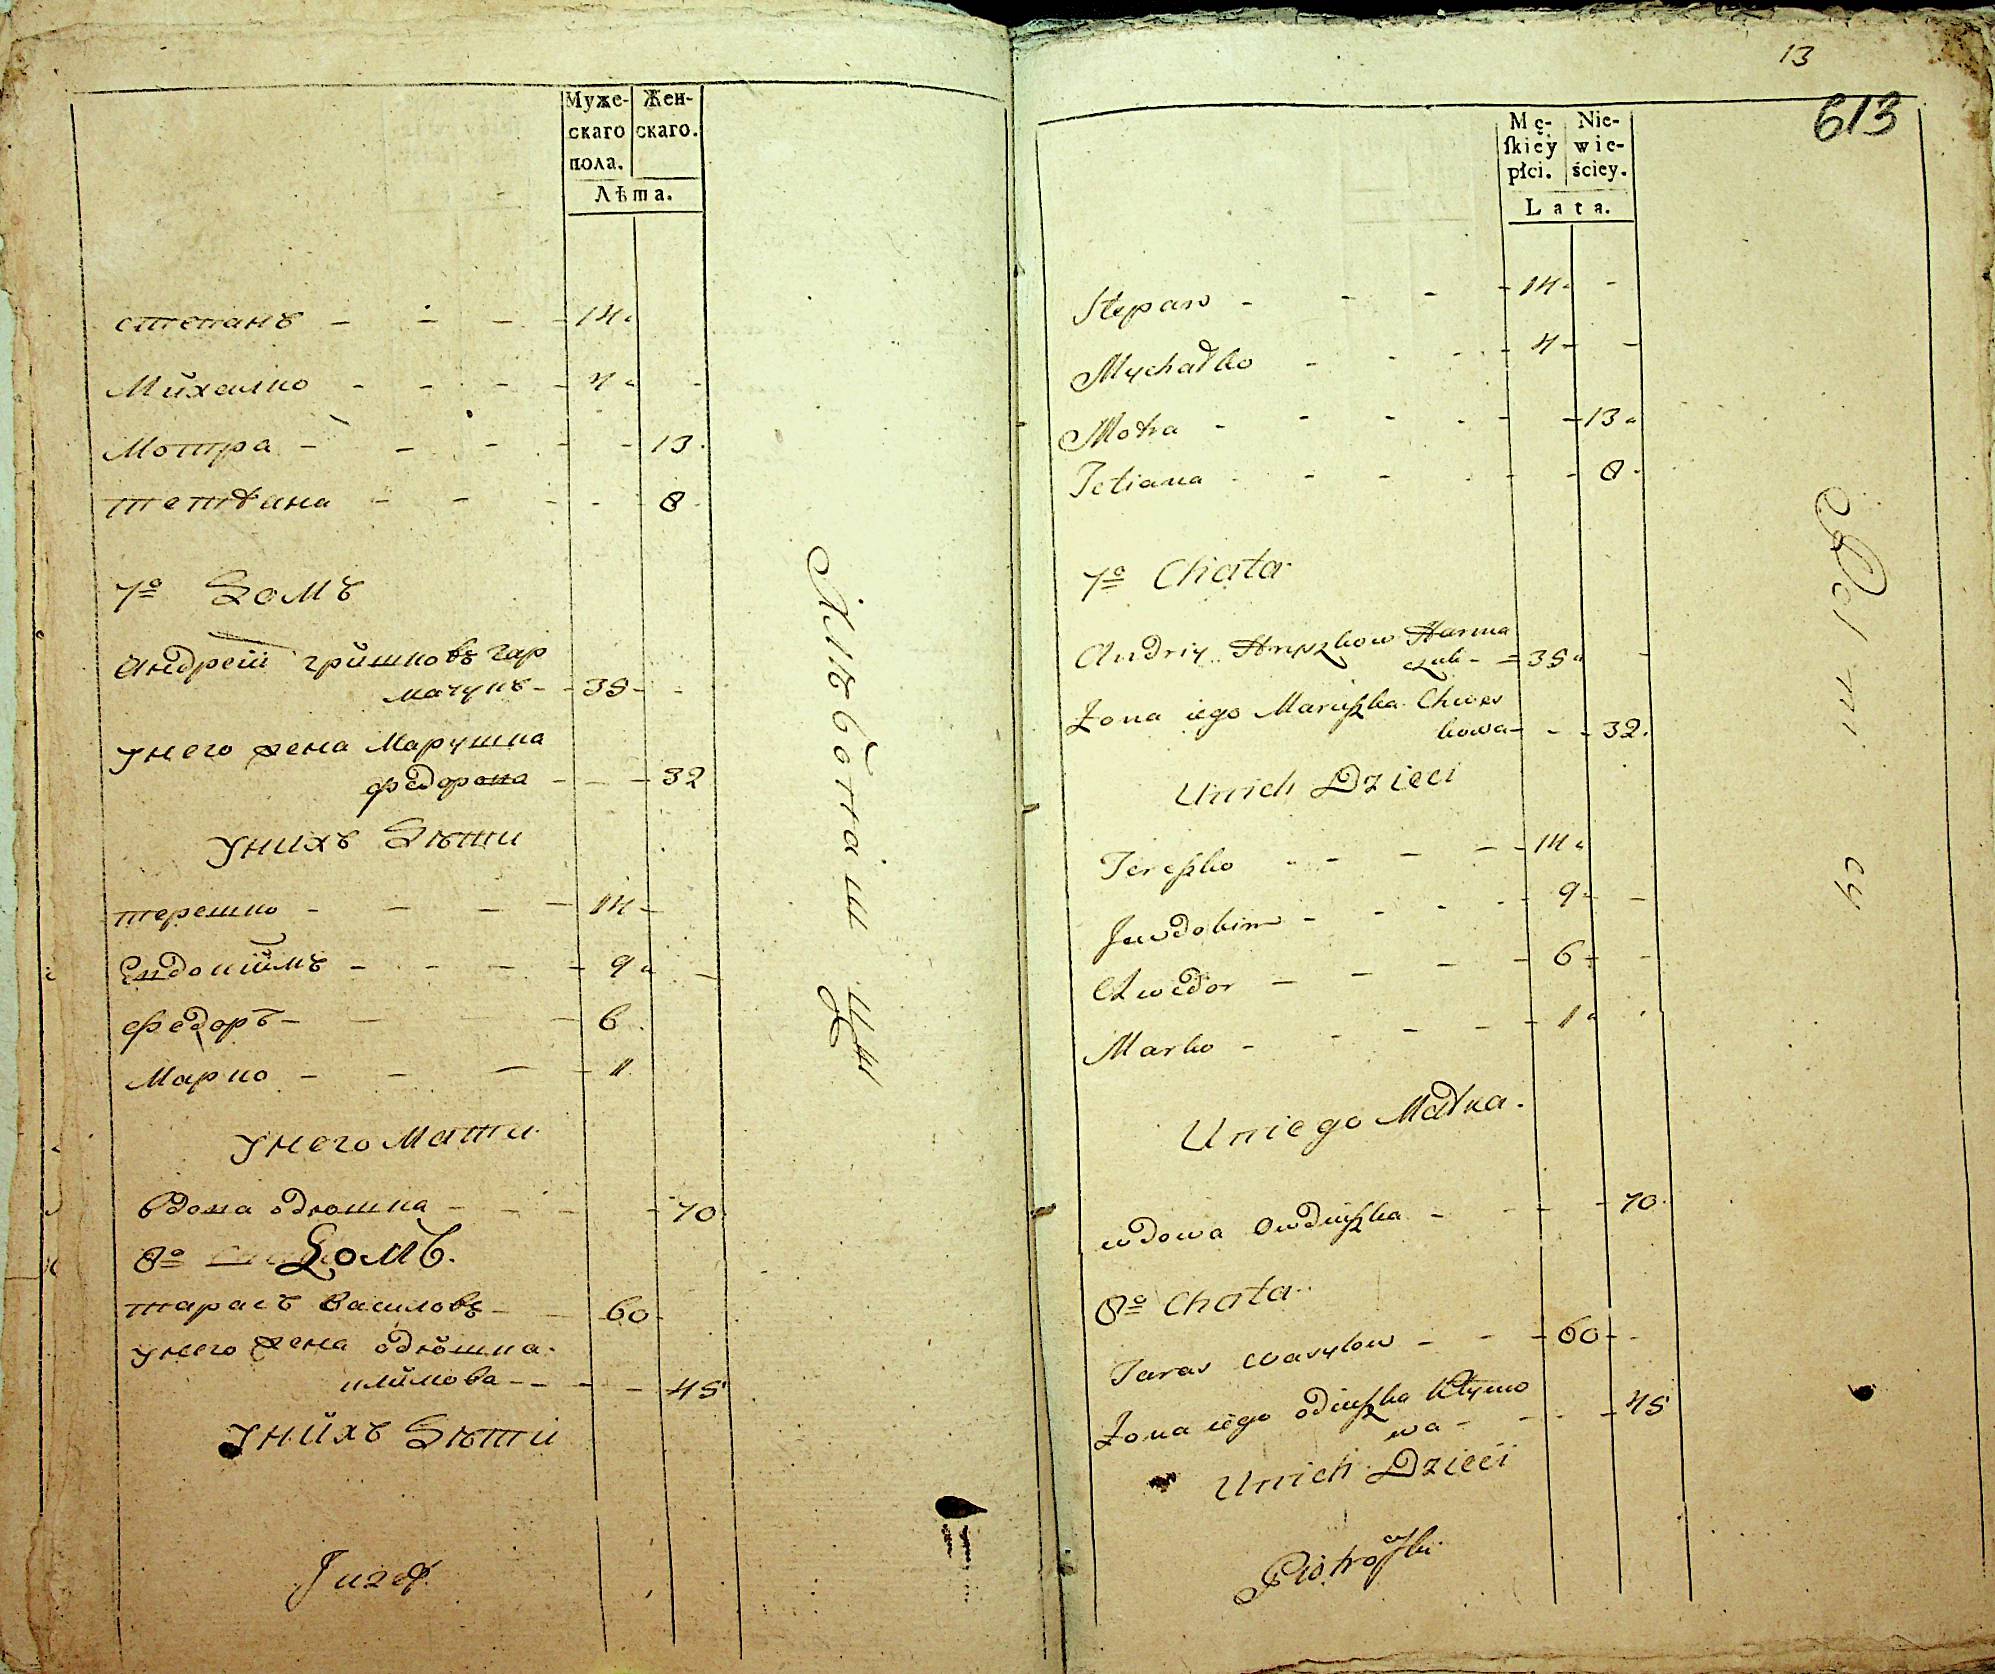 Муже-
скаго
пола.
Жен-
скаго.
Лѣта.
степанъ - - - - 14
Михалко - - - - 4
Мотра - - - - - 13
тетяна - - - - - 8
7º Домъ
Андрей гришковъ Гар
мачукъ - - 35 -
Унего жена Марушка
федорова - - - 32
Унихъ Дѣти
терешко - - - - 14 -
Евдокимъ - - - - 9
федоръ - - - 6
Марко - - - - 1
Унего Мати
вдова одюшка - - - - 70
8º Домъ.
тарасъ василовъ - - 60
унего жена одюшка
климова - - - - 45
Унихъ Дѣти
Juzef
Клѣботаши
13
613
Mę-
ſkiey
płci.
Nie-
wie-
ściey.
Lata.
Stepan - - - - 14 -
Mychałko - - - - 4 -
Motra - - - - - 13
Tetiana - - - - - 8
7º Chata
Andriy Hryszkow Harma
czuk - = 35 -
Żona iego Maruszka Chwed
kowa - - - 32.
Unich Dzieci
Tereszko - - - - 14
Jewdokim - - - - 9 -
Chwedor - - - - 6 -
Marko - - - - 1
Uniego Matka.
wdowa Owduszka - - - - 70.
8º Chata
Taras Wasylow - - - 60 -
Żona iego odiuszka Kłymo
wa - - - - 45
Unich Dzieci
Piotrowski